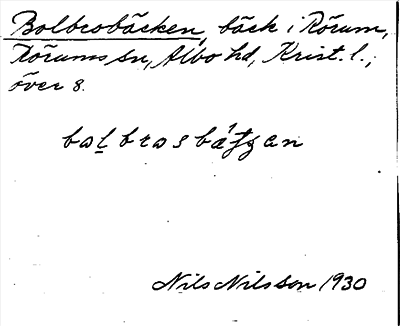 Bolbrobäcken, bäck i Rörum,
Rörums sn, Albo hd, Krist. l.;
över 8.
Nils Nilsson 1930